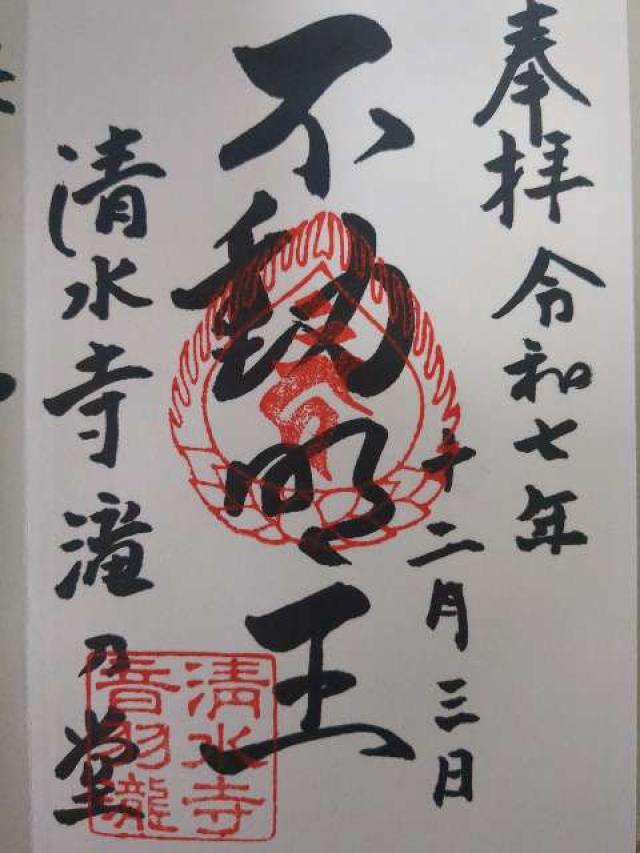 奉拝 令和七年
十二月三日
不動明王
清水寺 滝乃堂
清水寺
音羽瀧